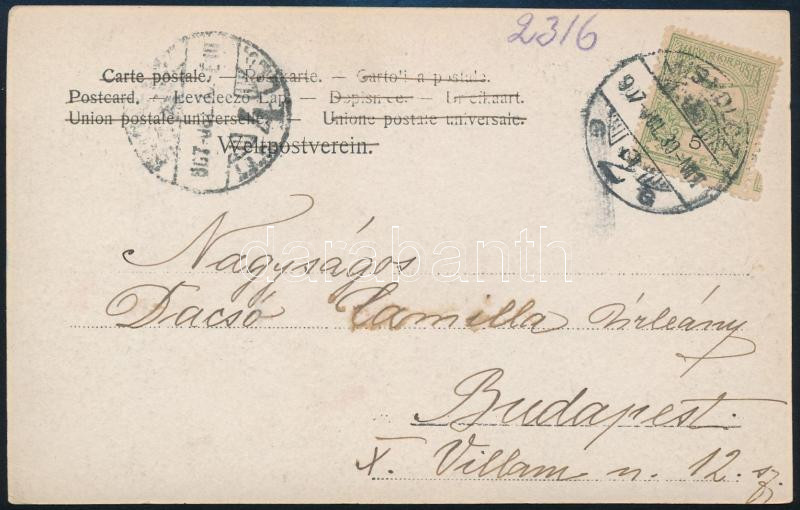 2316
Carte postale. — Postkarte. — Carto'i a postale.
Postcard. — Levelező-Lap. — Dopisnice. — Briefkaart.
Union postale universelle. — Unione postale universale.
Weltpostverein.
MISKOLCZ
5
darabanth
Nagyságos
Dacsó Camilla Úrleány
Budapest.
X. Villam u. 12. sz.